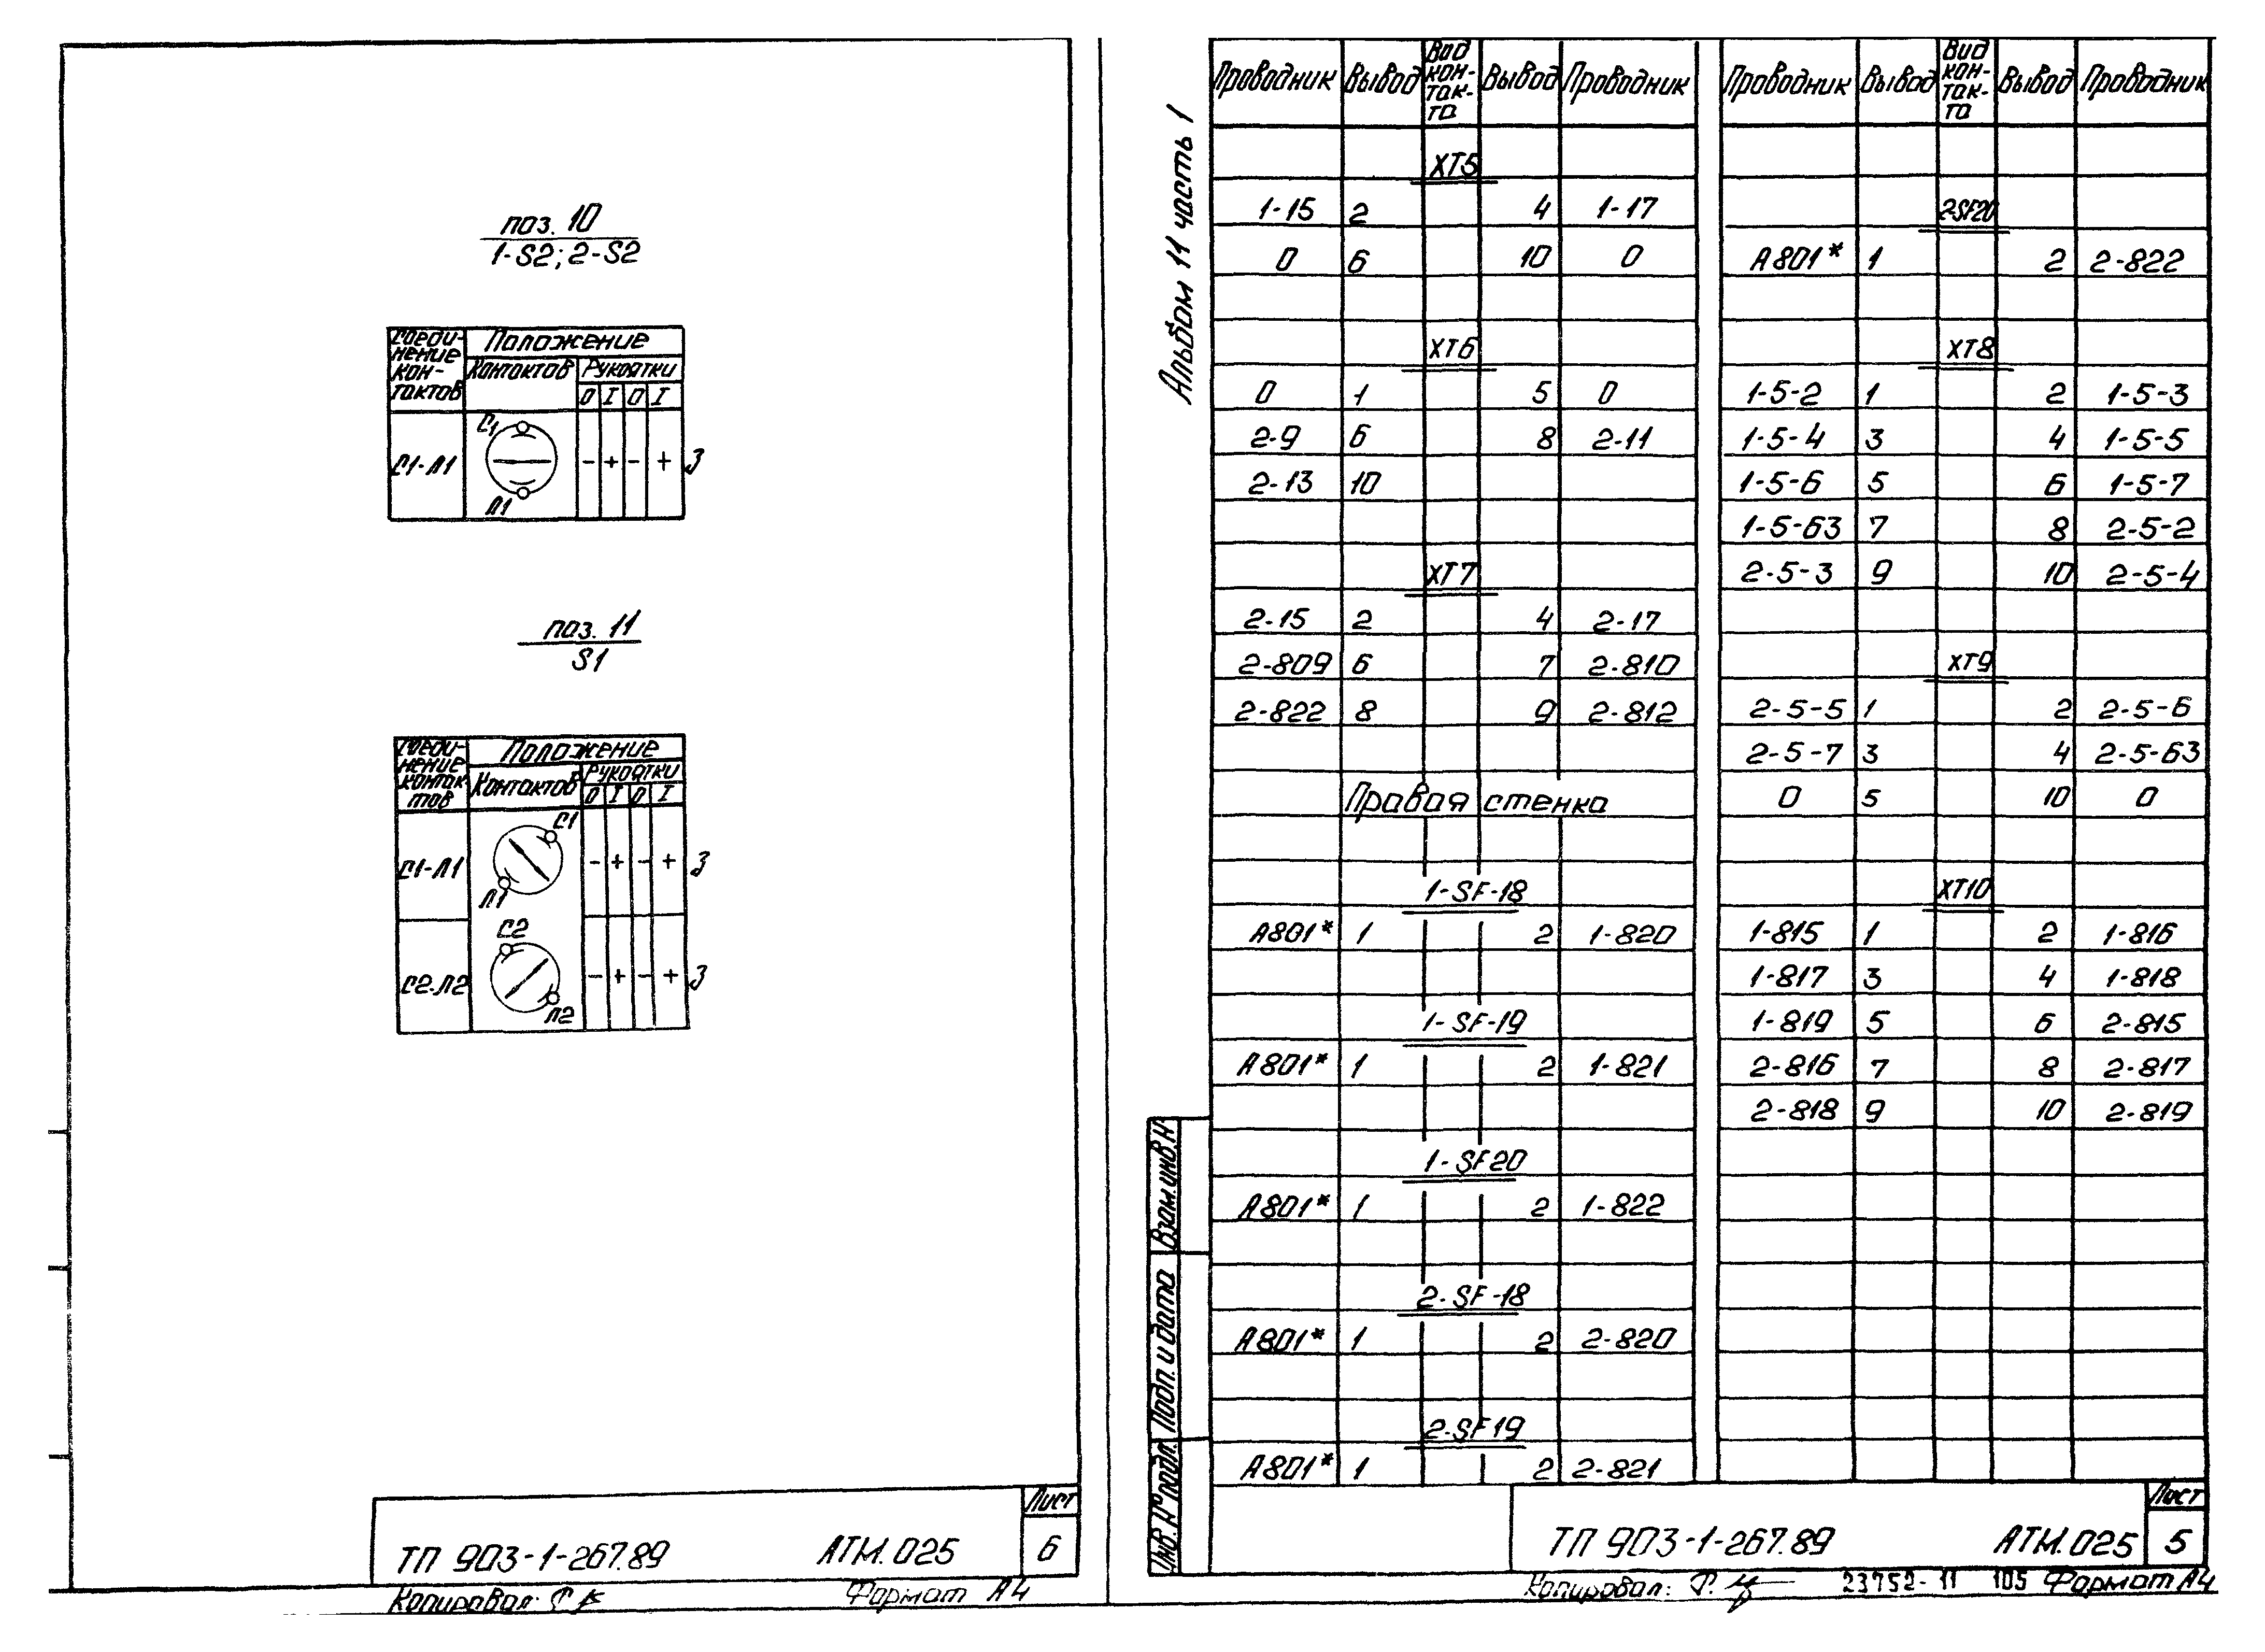 поз. 10
1-S2; 2-S2
Соеди-
нение
кон-
тактов
Положение
Контактов Рукоятки
0 I 0 I
С1
С1-Л1 - + - + З
Л1
поз. 11
S1
Соеди-
нение
контак-
тов
Положение
Контактов Рукоятки
0 I 0 I
С1
С1-Л1 - + - + З
Л1
С2
С2-Л2 - + - + З
Л2
Лист
ТП 903-1-267.89 АТМ.025 6
Копировал: Формат А4
Альбом 11 часть 1
Проводник Вывод Вид кон-так-та Вывод Проводник
XT5
1-15 2 4 1-17
0 6 10 0
XT6
0 1 5 0
2-9 6 8 2-11
2-13 10
XT7
2-15 2 4 2-17
2-809 6 7 2-810
2-822 8 9 2-812
Правая стенка
1-SF-18
А801* 1 2 1-820
1-SF-19
А801* 1 2 1-821
1-SF20
А801* 1 2 1-822
2-SF-18
А801* 1 2 2-820
2-SF19
А801* 1 2 2-821
Проводник Вывод Вид кон-так-та Вывод Проводник
2-SF20
А801* 1 2 2-822
XT8
1-5-2 1 2 1-5-3
1-5-4 3 4 1-5-5
1-5-6 5 6 1-5-7
1-5-63 7 8 2-5-2
2-5-3 9 10 2-5-4
XT9
2-5-5 1 2 2-5-6
2-5-7 3 4 2-5-63
0 5 10 0
XT10
1-815 1 2 1-816
1-817 3 4 1-818
1-819 5 6 2-815
2-816 7 8 2-817
2-818 9 10 2-819
Взам.инв.N
Подп. и дата
Инв. N°подл.
Лист
ТП 903-1-267.89 АТМ.025 5
Копировал: 23752-11 105 Формат А4